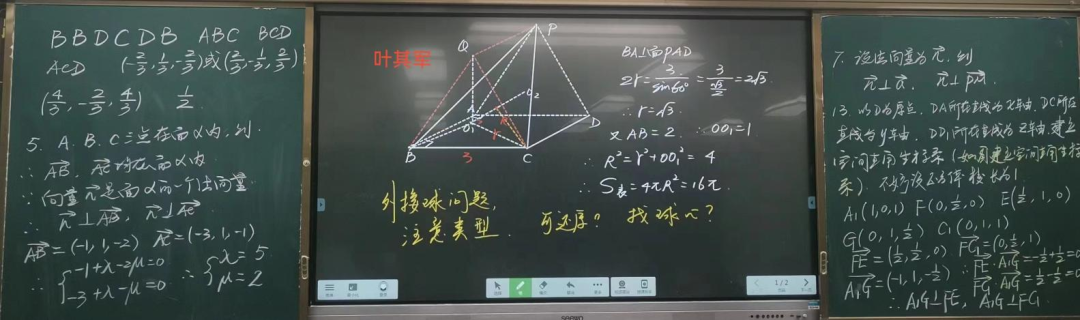 B B D C D B  ABC  BCD
ACD  (-2/3, 1/3, -2/3)或(2/3, -1/3, 2/3)
(4/3, -2/3, 4/3)  1/2
5. A. B. C三点在面α内, 则
∴ AB, AC均在面α内
∵ 向量n是面α的一个法向量
∴ n⊥AB, n⊥AC
AB=(-1,1,-2) AC=(-3,1,-1)
∴ { -1+λ-2μ=0 ∴ { λ=5
-3+λ-μ=0 μ=2
叶其军
P
Q
A
O₁
O₂
R
r
B
3
C
D
BA⊥面PAD
2r=3/sin60°=3/(√3/2)=2√3
∴ r=√3
又AB=2 ∴ OO₁=1
∴ R²=r²+OO₁²=4
∴ S表=4πR²=16π.
外接球问题,
注意类型. 可还原? 找球心?
1/2
seewo
7. 设法向量为n, 则
n⊥a. n⊥PA.
13. 以D为原点. DA所在直线为x轴. DC所在
直线为y轴. DD₁所在直线为z轴. 建立
空间直角坐标系(如图建立空间直角坐标
系). 不妨设正方体棱长为1
A₁(1,0,1) F(0,1/2,0) E(1/2,1,0)
G(0,1,1/2) C₁(0,1,1)
FE=(1/2,1/2,0) FG=(0,1/2,1/2)
A₁G=(-1,1,-1/2) ∵ FE·A₁G=-1/2+1/2=0
FG·A₁G=1/2-1/2=0
∴ A₁G⊥FE, A₁G⊥FG